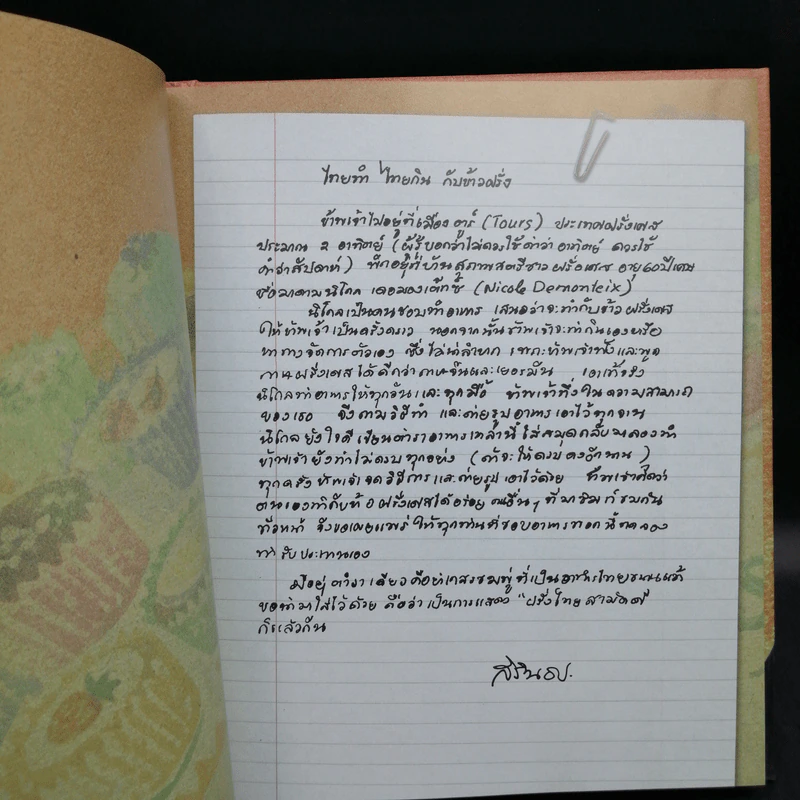 ไทยทำ ไทยกิน กับข้าวฝรั่ง
ข้าพเจ้าไปอยู่ที่เมือง ตูร์ (Tours) ประเทศฝรั่งเศส
ประมาณ ๒ อาทิตย์ (ผู้รู้บอกว่าไม่ควรใช้คำว่า อาทิตย์ ควรใช้
คำว่าสัปดาห์) พักอยู่ที่บ้านสุภาพสตรีชาวฝรั่งเศส อายุ ๖๐ ปีเศษ
ชื่อมาดามนิโคล เดอมองเต็กซ์ (Nicole Demonteix)
นิโคลเป็นคนชอบทำอาหาร เสนอว่าจะทำกับข้าวฝรั่งเศส
ให้ข้าพเจ้าเป็นครั้งคราว นอกจากนั้นข้าพเจ้าจะทำกินเองหรือ
หาทางจัดการตัวเอง ซึ่งไม่น่าลำบาก เพราะข้าพเจ้าฟังและพูด
ภาษาฝรั่งเศสได้ดีกว่าภาษาจีนและเยอรมัน เอาเข้าจริง
นิโคลทำอาหารให้ทุกวันและทุกมื้อ ข้าพเจ้าทึ่งในความสามารถ
ของเธอ จึงถามวิธีทำ และถ่ายรูปอาหารเอาไว้ทุกจาน
นิโคลยังใจดีเขียนตำราอาหารเหล่านี้ใส่สมุด กลับมาลองทำ
ข้าพเจ้ายังทำไม่ครบทุกอย่าง (ถ้าจะให้ครบคงอีกนาน)
ทุกครั้งข้าพเจ้าจดวิธีการและถ่ายรูปเอาไว้ด้วย ข้าพเจ้าคิดว่า
ตนเองทำกับข้าวฝรั่งเศสได้อร่อย คนอื่นๆ ที่มาชิมก็ชมกัน
ทั่วหน้า จึงขอเผยแพร่ให้ทุกท่านที่ชอบอาหารพวกนี้ทดลอง
ทำรับประทานเอง
มีอยู่ตำราเดียวคือยำเกสรชมพู่ที่เป็นอาหารไทยขนานแท้
ขอนำมาใส่ไว้ด้วย ถือว่าเป็นการแสดง "ฝรั่งไทยสามัคคี"
ก็แล้วกัน
สิรินธร